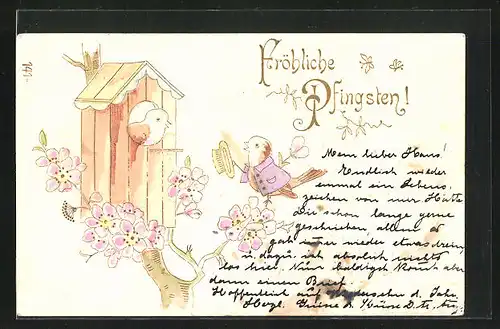 141-
Fröhliche
Pfingsten!
Mein lieber Hans!
Endlich wieder
einmal ein Lebens-
zeichen von mir. Hätte
Dir schon lange gerne
geschrieben, allein es
gab immer wieder etwas drein,
u. dazu ist absolut nichts
los hier. Nun baldigst kommt aber
dann einen Brief.
Hoffentlich auf d.
Herzl. Grüsse u. Küsse D. tr.